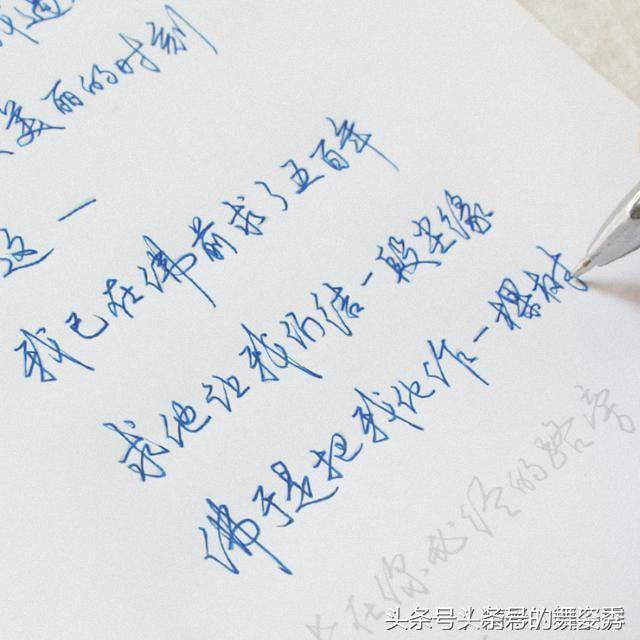 美丽的时刻
这一
我已在佛前求了五百年
求他让我们结一段尘缘
佛于是把我化作一棵树
在你必经的路旁
头条号